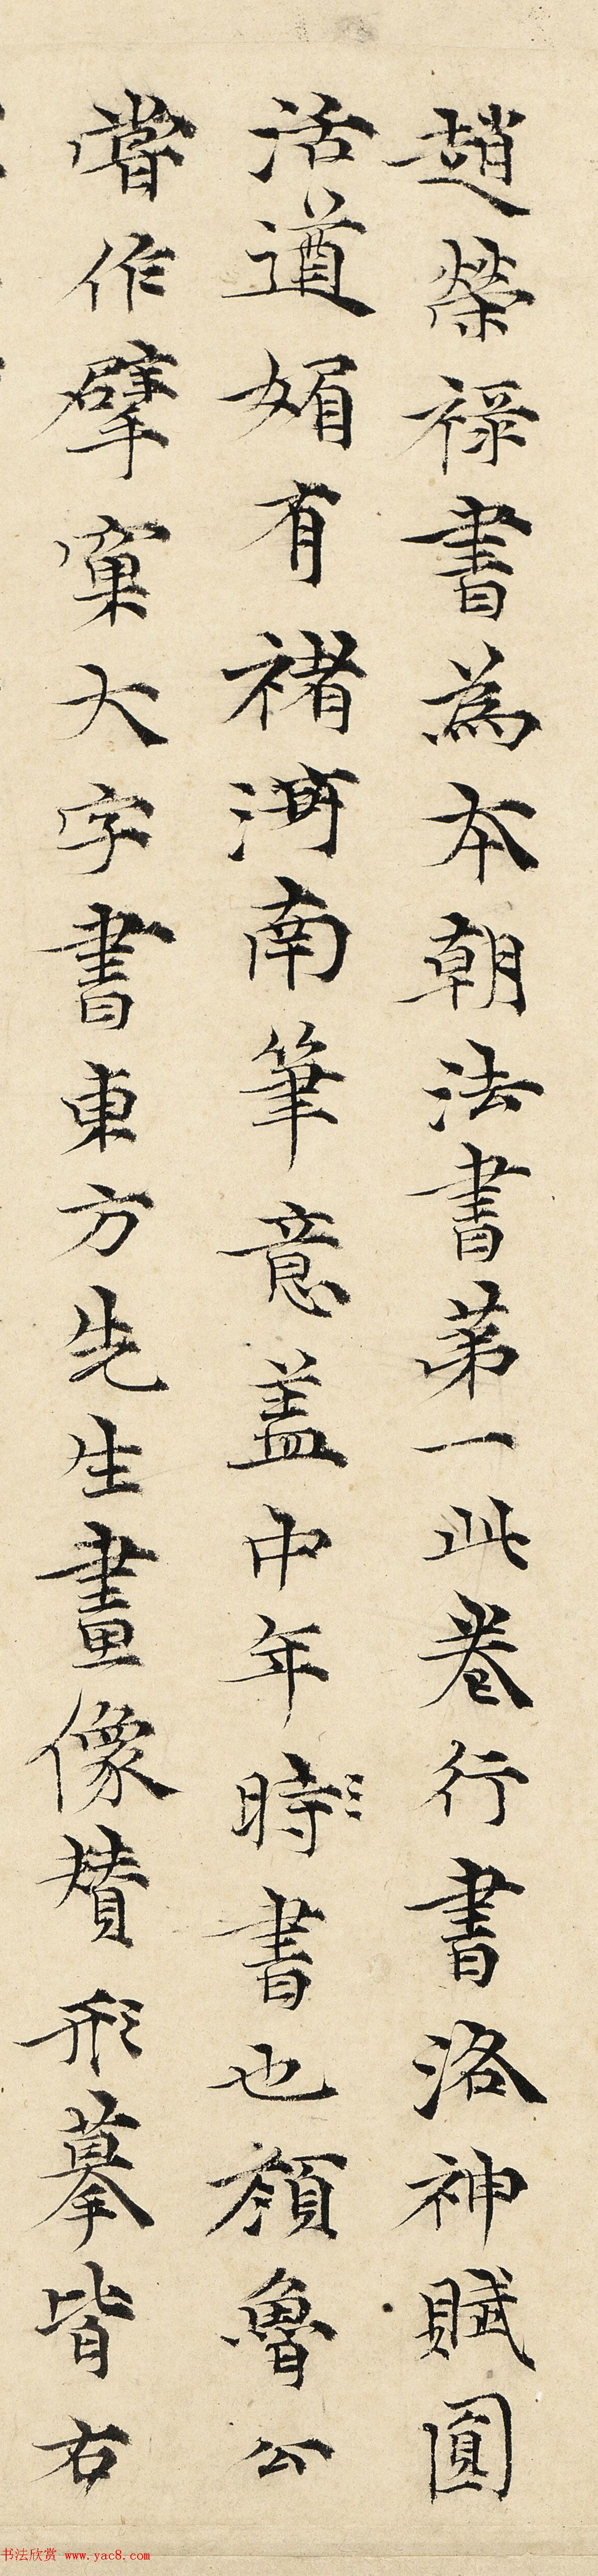 趙榮祿書為本朝法書第一此卷行書洛神賦圓
活遒媚有褚河南筆意盖中年時書也顏魯公
嘗作擘窠大字書東方先生畫像賛形摹皆右
书法欣赏 www.yac8.com